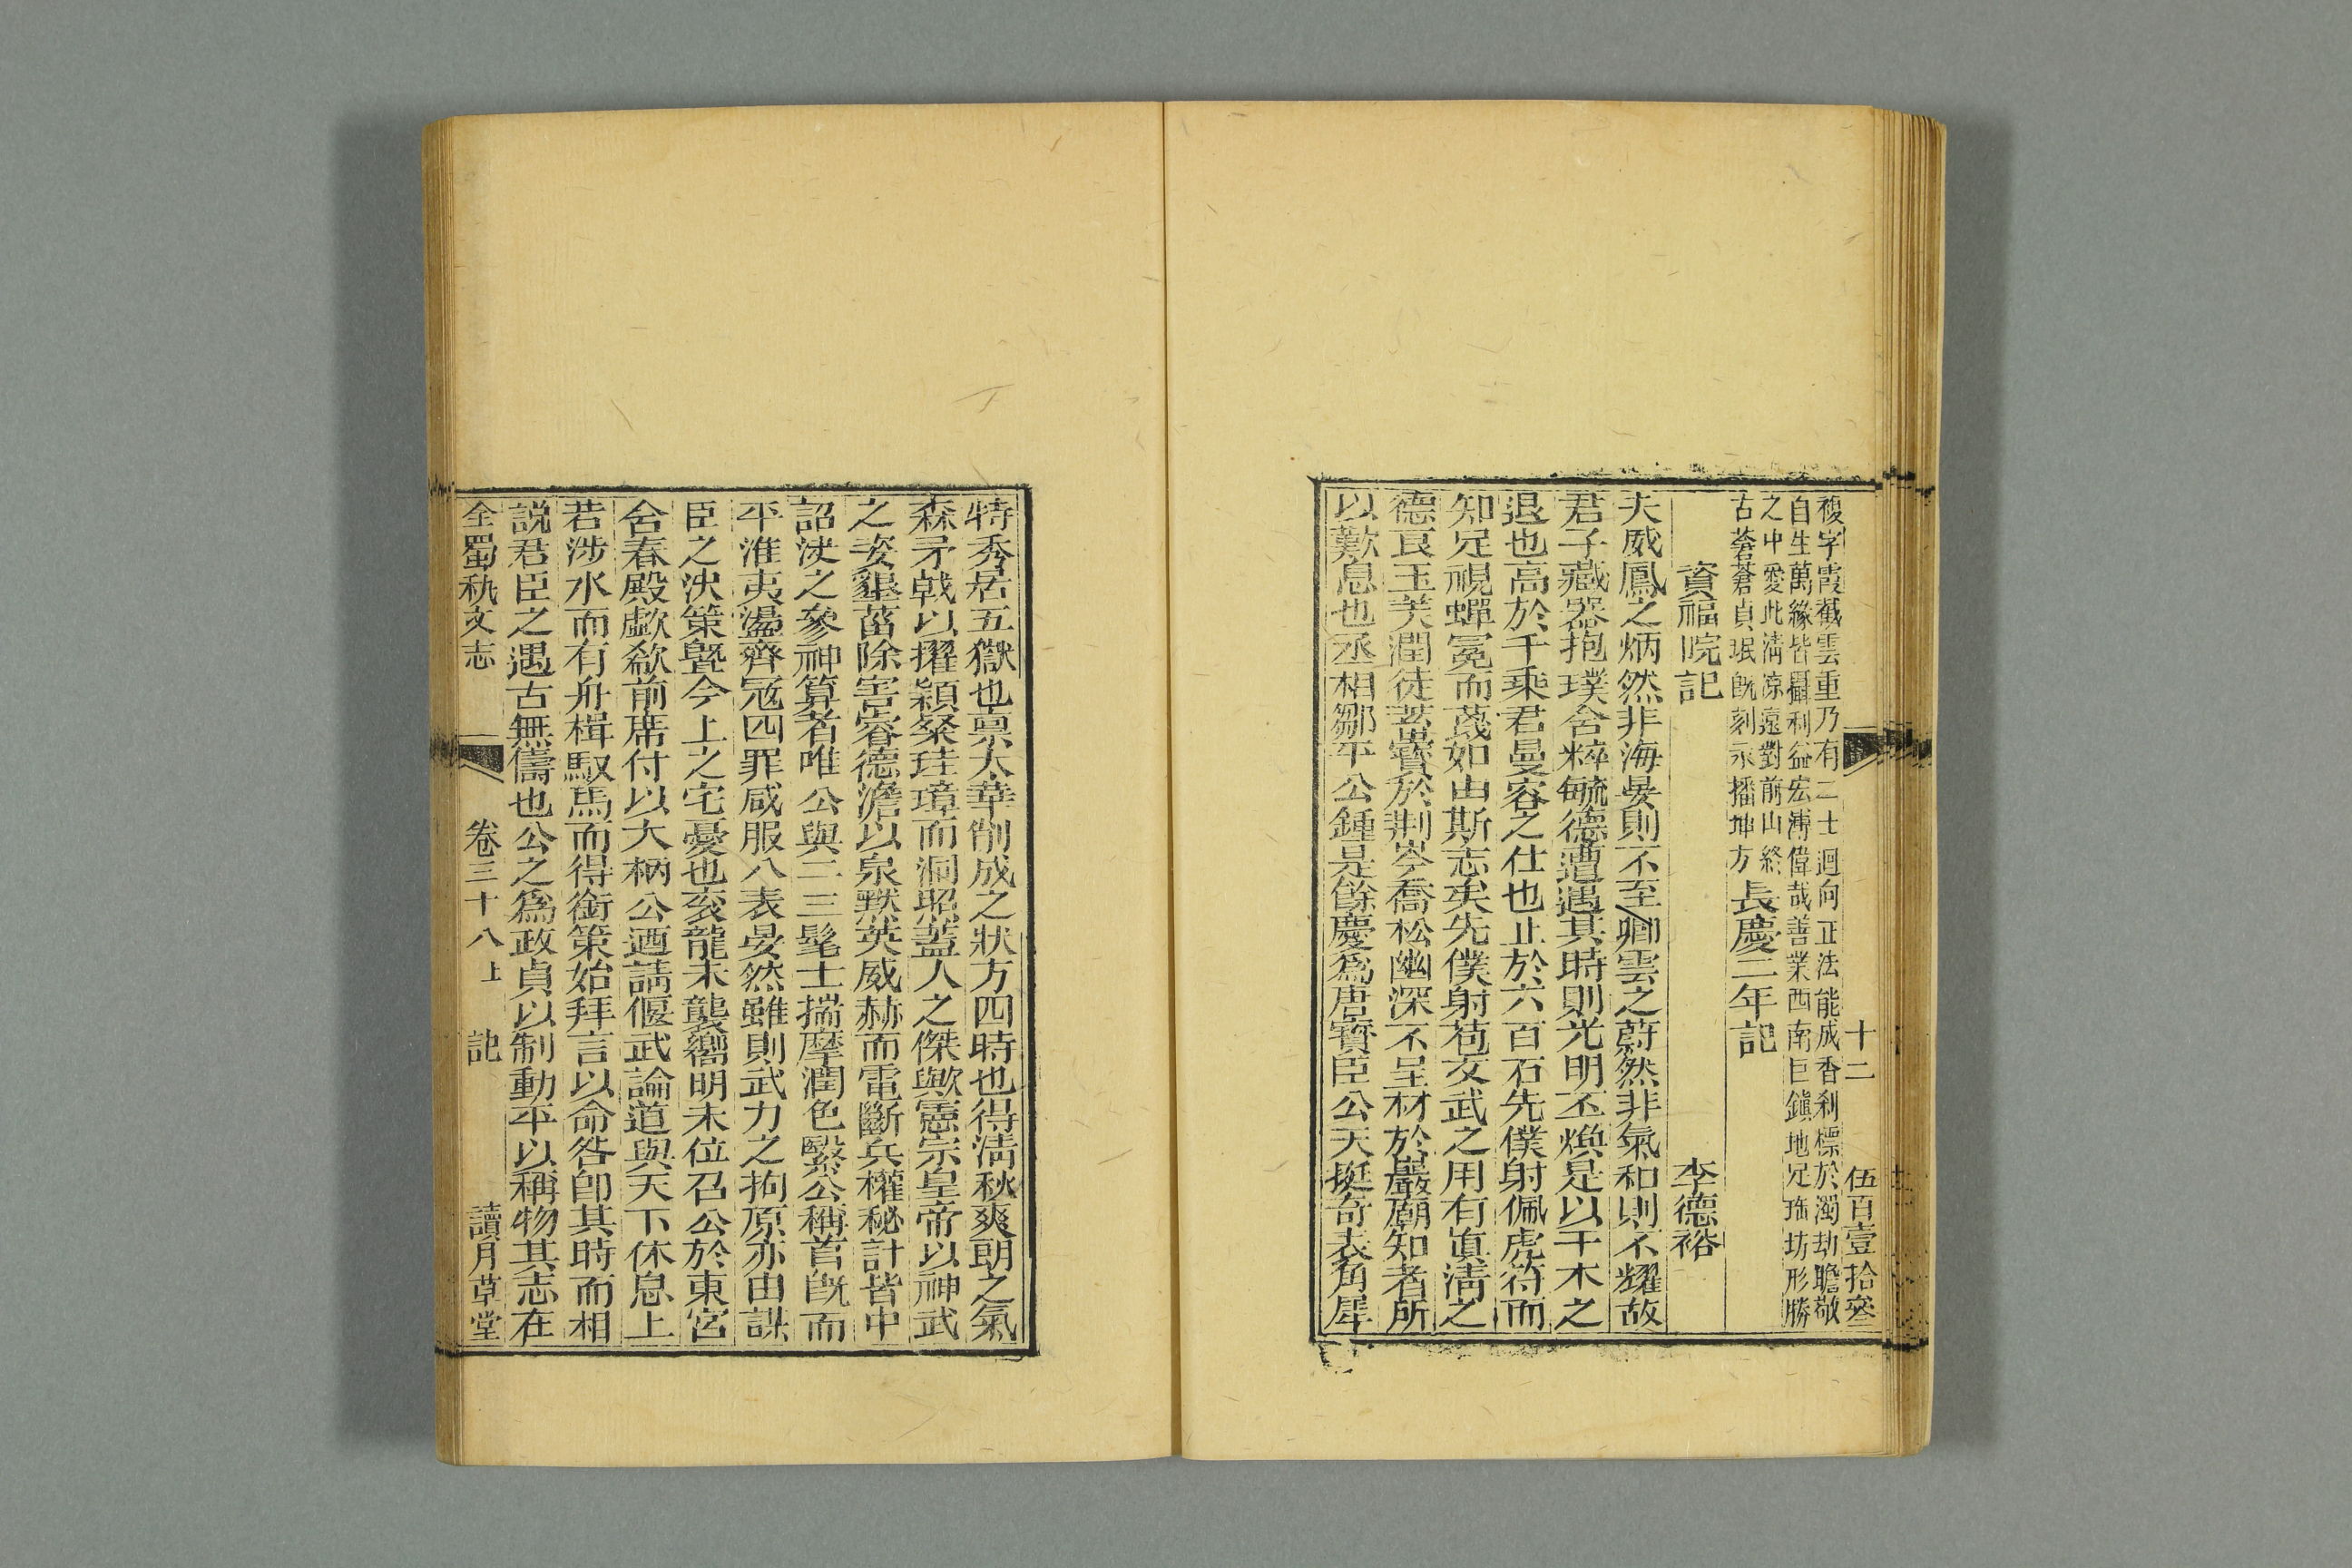 十二 伍百壹拾叄
複宇霞截雲重乃有二士迴向正法能成香刹標於濁劫瞻敬
自生萬緣皆攝利益宏溥偉哉善業西南巨鎮地兄珠坊形勝
之中愛此淸涼遠對前山終
古蒼蒼貞珉旣刻示播坤方
長慶二年記
資福院記 李德裕
夫威鳳之炳然非海晏則不至卿雲之蔚然非氣和則不耀故
君子藏器抱璞含粹毓德遭遇其時則光明丕煥是以干木之
退也高於千乘君曼容之仕也止於六百石先僕射佩虎符而
知足視蟬冕而蔑如由斯志矣先僕射苞文武之用有眞淸之
德良玉美潤徒蓄寶於荆岑喬松幽深不呈材於巖廟知者所
以歎息也丞相鄒平公鍾是餘慶爲唐寶臣公天挺奇表角犀
特秀居五嶽也禀太華削成之狀方四時也得淸秋爽朗之氣
森矛戟以擢穎粲珪璋而洞照蓋人之傑歟憲宗皇帝以神武
之姿墾菑除害睿德澹以泉默英威赫而電斷兵權秘計皆中
詔決之參神算者唯公與二三髦士揣摩潤色緊公稱首旣而
平淮夷盪齊寇四罪咸服八表晏然雖則武力之拘原亦由謀
臣之決策曁今上之宅憂也亥龍未襲嚮明未位召公於東宮
含春殿歔欷前席付以大柄公迺請偃武論道與天下休息上
若涉水而有舟楫馭馬而得銜策始拜言以命咎卽其時而相
説君臣之遇古無儔也公之爲政貞以制動平以稱物其志在
全蜀秇文志 卷三十八上 記 讀月草堂